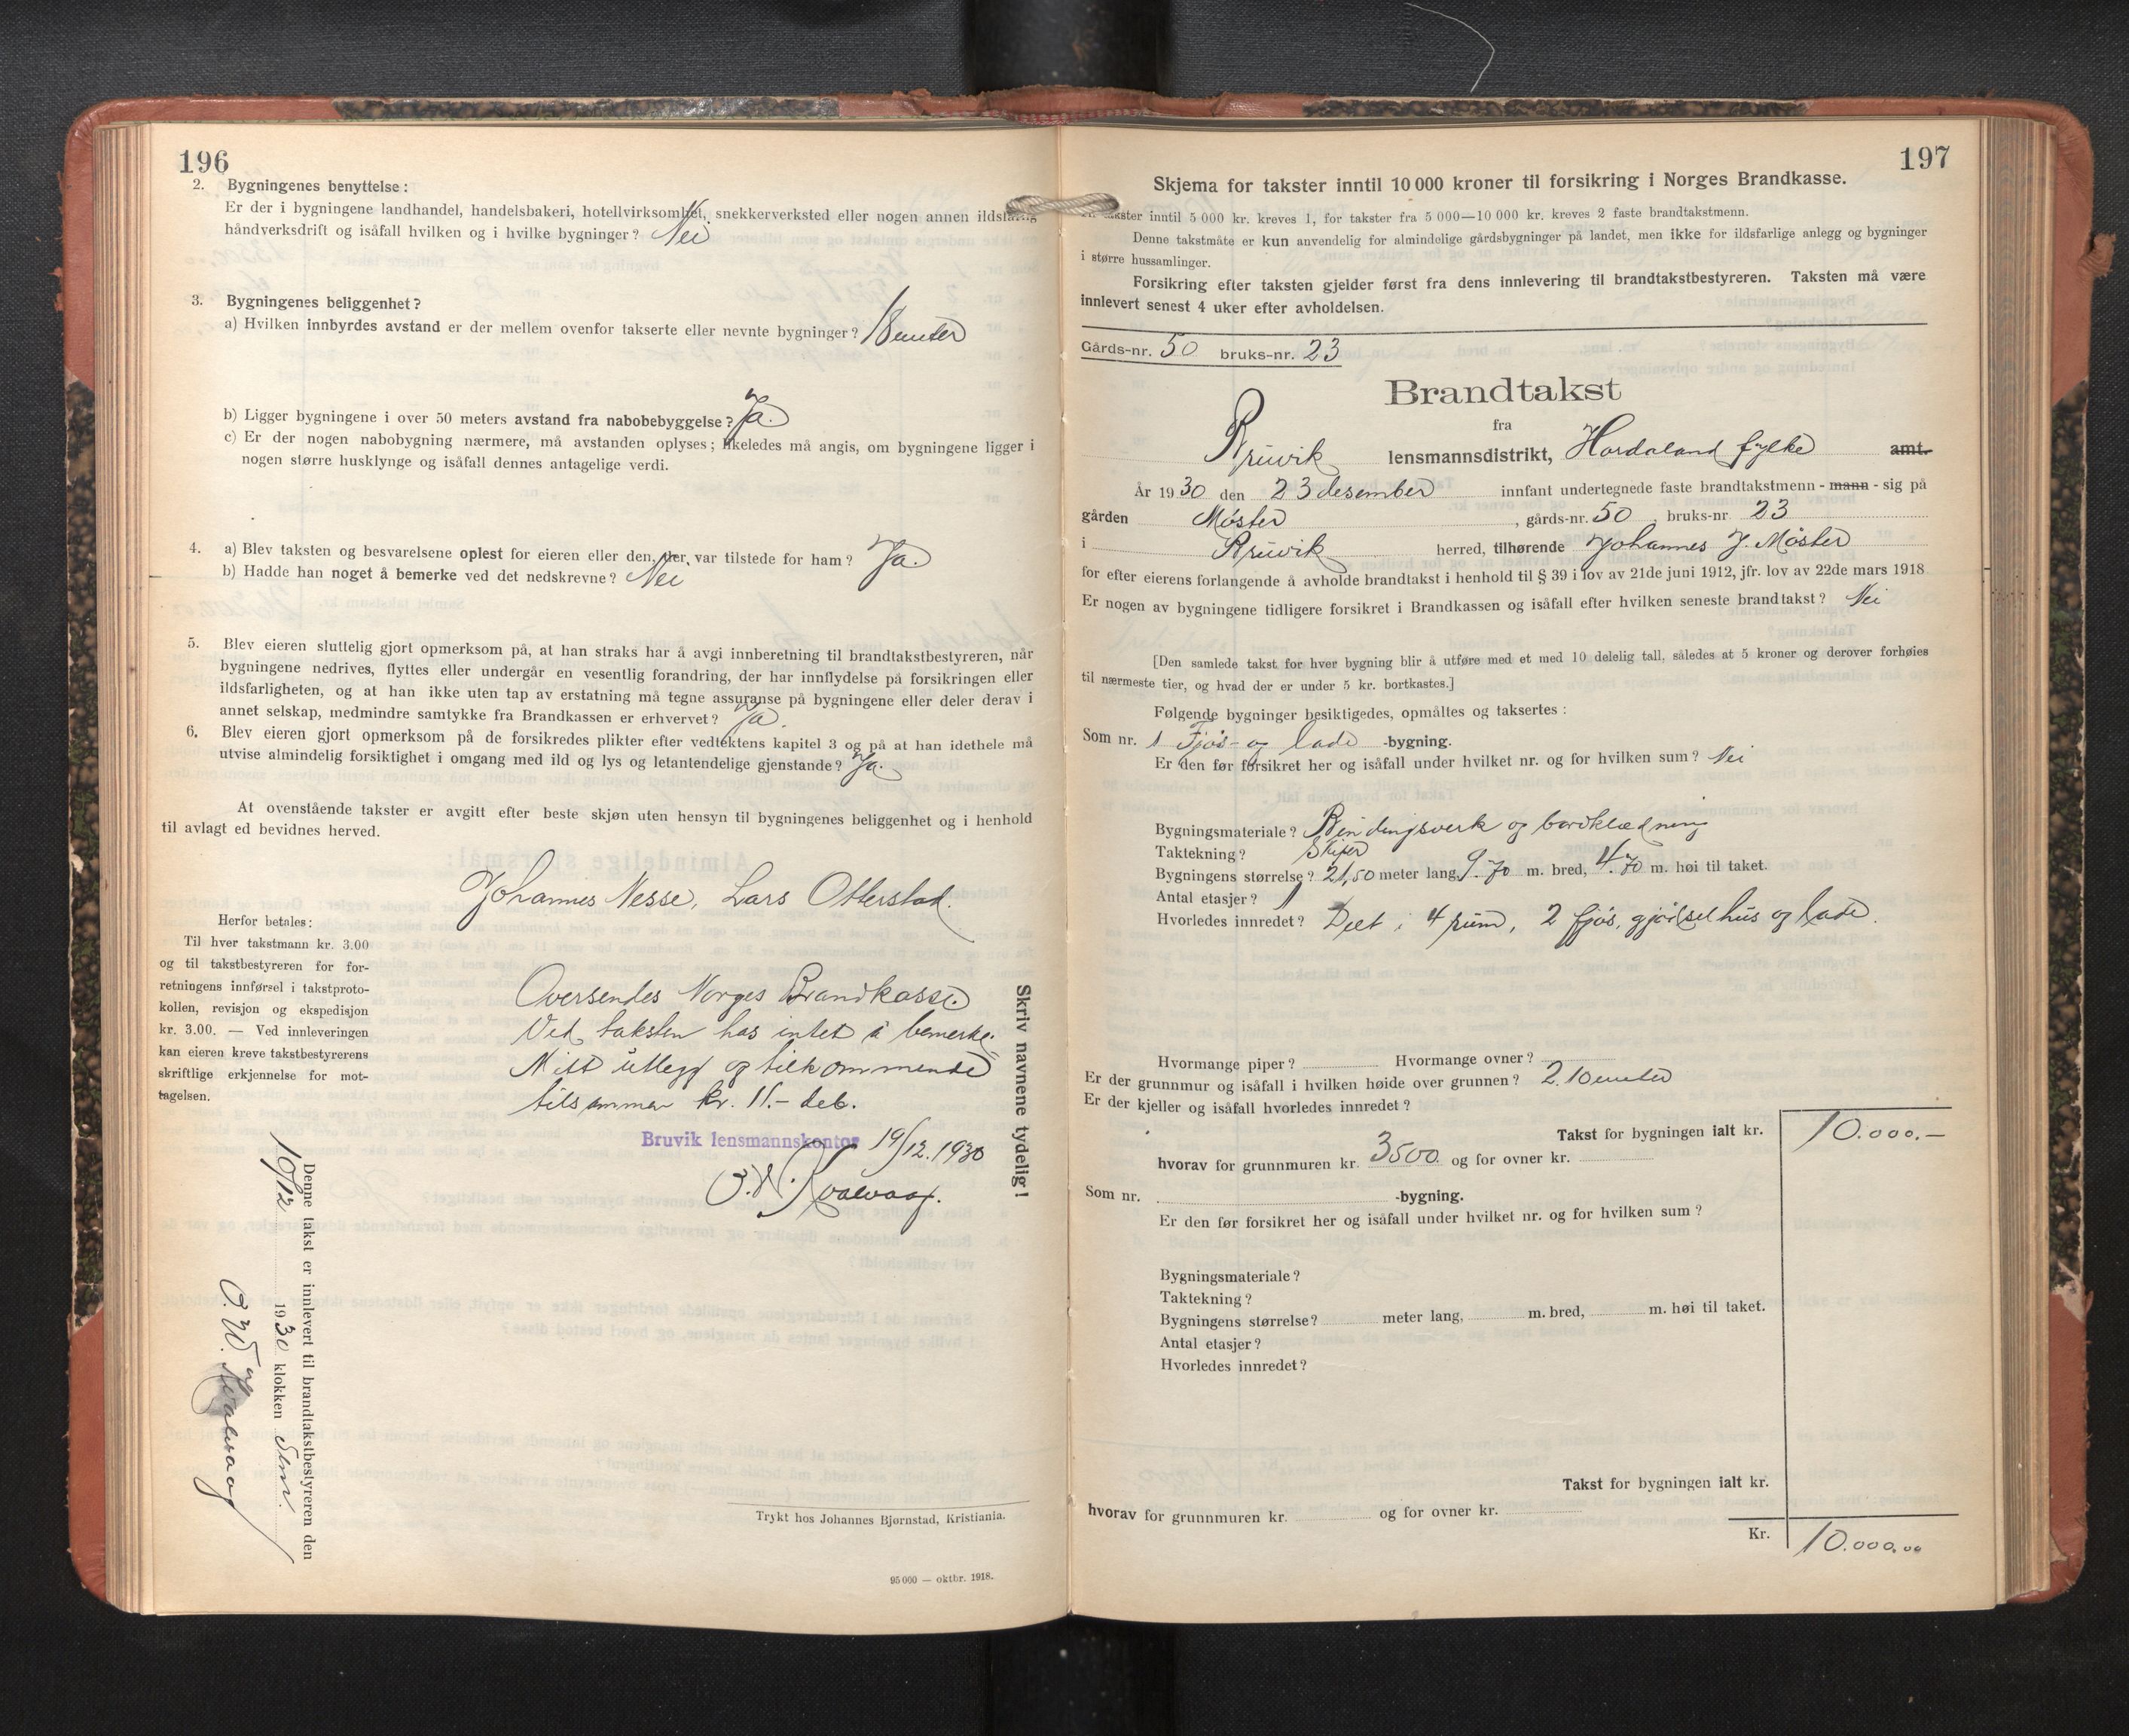 196
2. Bygningenes benyttelse:
Er der i bygningene landhandel, handelsbakeri, hotellvirksomhet, snekkerverksted eller nogen annen ildsfarlig
håndverksdrift og isåfall hvilken og i hvilke bygninger? Nei
3. Bygningenes beliggenhet?
a) Hvilken innbyrdes avstand er der mellem ovenfor takserte eller nevnte bygninger? 18 meter
b) Ligger bygningene i over 50 meters avstand fra nabobebyggelse? Ja.
c) Er der nogen nabobygning nærmere, må avstanden oplyses; likeledes må angis, om bygningene ligger i
nogen større husklynge og isåfall dennes antagelige verdi.
4. a) Blev taksten og besvarelsene oplest for eieren eller den, der var tilstede for ham? Ja.
b) Hadde han noget å bemerke ved det nedskrevne? Nei
5. Blev eieren sluttelig gjort opmerksom på, at han straks har å avgi innberetning til brandtakstbestyreren, når
bygningene nedrives, flyttes eller undergår en vesentlig forandring, der har innflydelse på forsikringen eller
ildsfarligheten, og at han ikke uten tap av erstatning må tegne assuranse på bygningene eller deler derav i
annet selskap, medmindre samtykke fra Brandkassen er erhvervet? Ja.
6. Blev eieren gjort opmerksom på de forsikredes plikter efter vedtektens kapitel 3 og på at han idethele må
utvise almindelig forsiktighet i omgang med ild og lys og letantendelige gjenstande? Ja.
At ovenstående takster er avgitt efter beste skjøn uten hensyn til bygningenes beliggenhet og i henhold
til avlagt ed bevidnes herved.
Johannes Nesse, Lars Otterstad.
Herfor betales:
Til hver takstmann kr. 3.00
og til takstbestyreren for for-
retningens innførsel i takstproto-
kollen, revisjon og ekspedisjon
kr. 3.00. — Ved innleveringen
kan eieren kreve takstbestyrerens
skriftlige erkjennelse for mot-
tagelsen.
Oversendes Norges Brandkasse.
Ved taksten has intet å bemerke.
Mitt utlegg og tilkommende
tilsammen kr. 11.– deb.
Bruvik lensmannskontor 19/12.1930
O. W. Kvalvaag.
Skriv navnene tydelig!
Denne takst er innlevert til brandtakstbestyreren den
19/12 1930 klokken
O. W. Kvalvaag
Trykt hos Johannes Bjørnstad, Kristiania.
95 000 — oktbr. 1918.
197
Skjema for takster inntil 10 000 kroner til forsikring i Norges Brandkasse.
takster inntil 5 000 kr. kreves 1, for takster fra 5 000—10 000 kr. kreves 2 faste brandtakstmenn.
Denne takstmåte er kun anvendelig for almindelige gårdsbygninger på landet, men ikke for ildsfarlige anlegg og bygninger
i større hussamlinger.
Forsikring efter taksten gjelder først fra dens innlevering til brandtakstbestyreren. Taksten må være
innlevert senest 4 uker efter avholdelsen.
Gårds-nr. 50 bruks-nr. 23
Brandtakst
fra
Bruvik lensmannsdistrikt, Hordaland fylke amt.
År 1930 den 23 desember innfant undertegnede faste brandtakstmenn - mann - sig på
gården Møster, gårds-nr. 50, bruks-nr. 23
i Bruvik herred, tilhørende Johannes J. Møster
for efter eierens forlangende å avholde brandtakst i henhold til § 39 i lov av 21de juni 1912, jfr. lov av 22de mars 1918
Er nogen av bygningene tidligere forsikret i Brandkassen og isåfall efter hvilken seneste brandtakst? Nei
[Den samlede takst for hver bygning blir å utføre med et med 10 delelig tall, således at 5 kroner og derover forhøies
til nærmeste tier, og hvad der er under 5 kr. bortkastes.]
Følgende bygninger besiktigedes, opmåltes og taksertes:
Som nr. 1 Fjøs- og lade -bygning.
Er den før forsikret her og isåfall under hvilket nr. og for hvilken sum? Nei
Bygningsmateriale? Bindingsverk og bordklædning
Taktekning? Skifer
Bygningens størrelse? 21,50 meter lang, 9.70 m. bred, 4.70 m. høi til taket.
Antal etasjer? 1
Hvorledes innredet? Delt i 4 rum, 2 fjøs, gjødselhus og lade.
Hvormange piper? Hvormange ovner?
Er der grunnmur og isåfall i hvilken høide over grunnen? 2.10 meter
Er der kjeller og isåfall hvorledes innredet?
Takst for bygningen ialt kr. 10.000.–
hvorav for grunnmuren kr. 3500 og for ovner kr.
Som nr. -bygning.
Er den før forsikret her og isåfall under hvilket nr. og for hvilken sum?
Bygningsmateriale?
Taktekning?
Bygningens størrelse? meter lang, m. bred, m. høi til taket.
Antal etasjer?
Hvorledes innredet?
Takst for bygningen ialt kr.
hvorav for grunnmuren kr. og for ovner kr.
Kr. 10.000.00